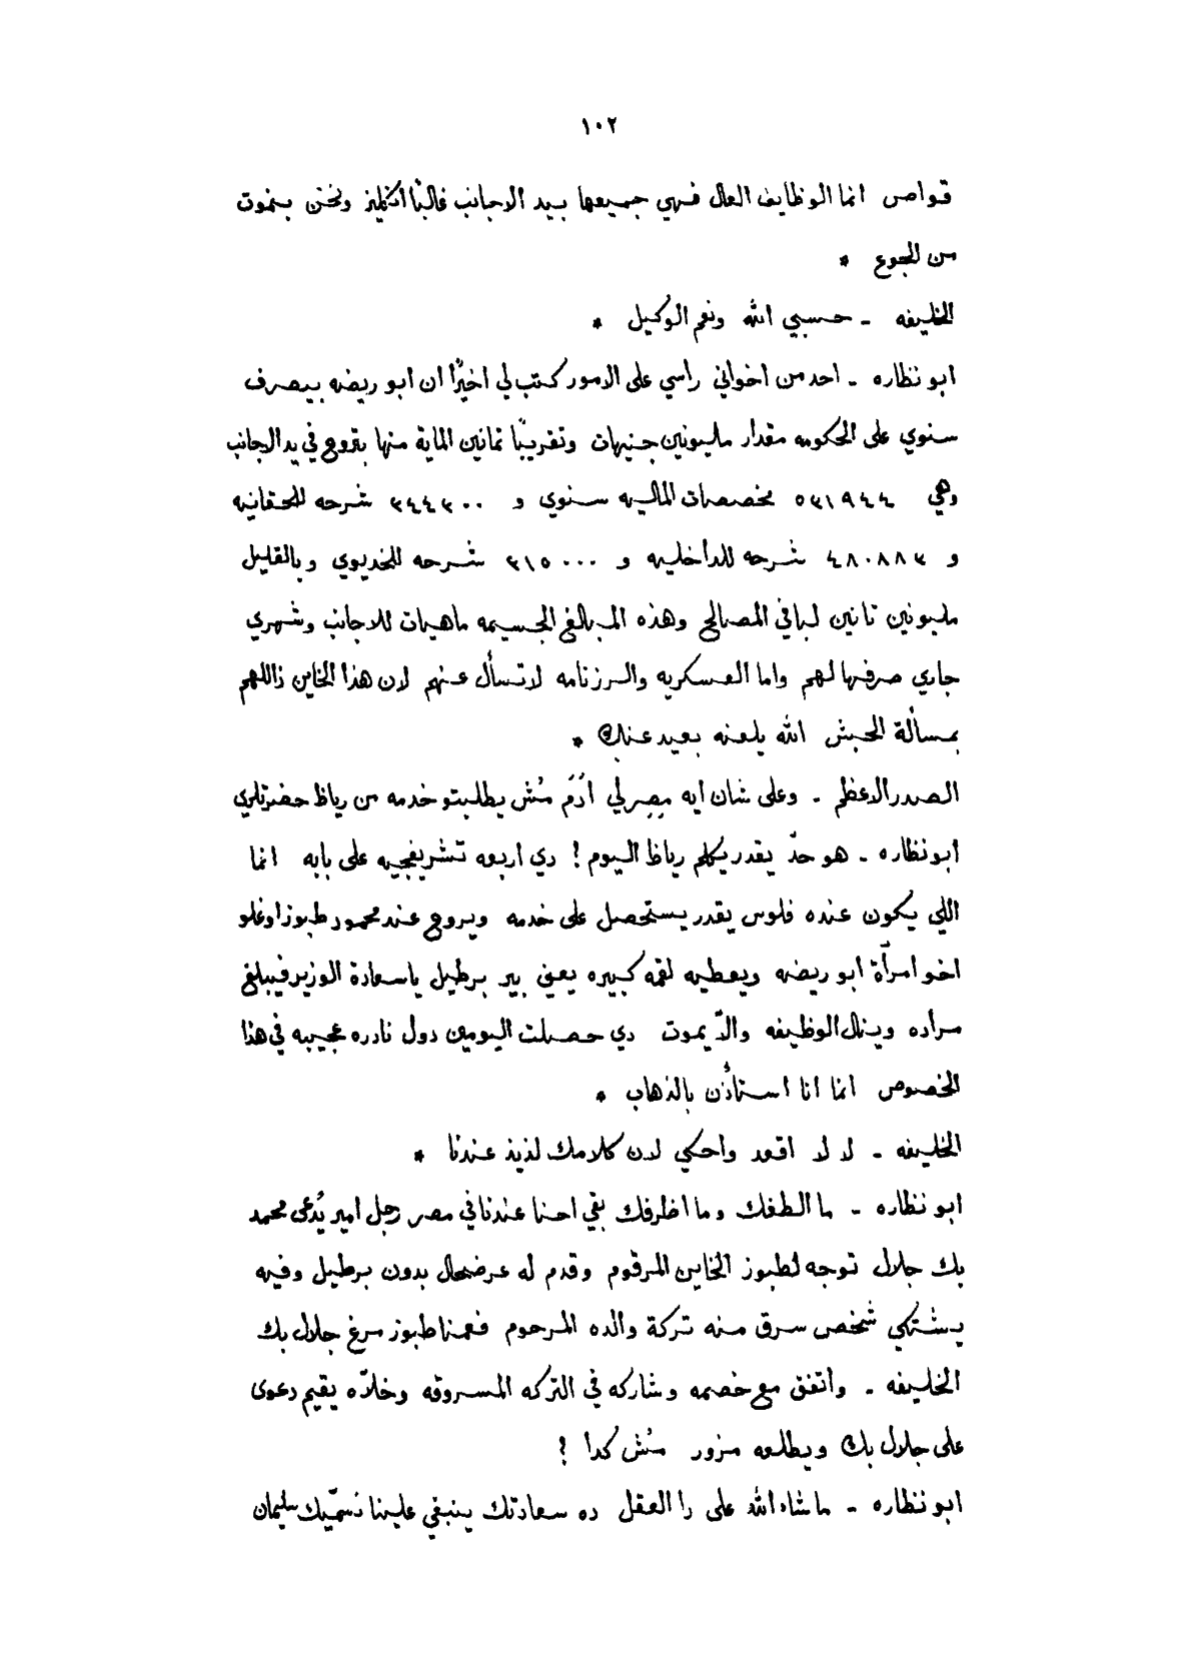 ١٠٢
قواص انما الوظايف العال فهي جميعها بيد الاجانب غالبًا انكليز ونحن بنموت
من الجوع *
الخليفه - حسبي الله ونعم الوكيل *
ابو نظاره - احد من اخواني راسي على الامور كتب لي اخيرًا ان ابو ريضه بيصرف
سنوي على الحكومه مقدار مليونين جنيهات وتقريبًا تمانين الماية منها بتروح في يد الاجانب
وهي ٥٣١٩٤٤ مخصصات الماليه سنوي و ٣٤٤٣٠٠ شرحه للحقانيه
و ٤٨٠٨٨٣ شرحه للداخليه و ٣١٥٠٠٠ شرحه للخديوي وبالقليل
مليونين تانين لباقي المصالح وهذه المبالغ الجسيمه ماهيات للاجانب وشهري
جاري صرفها لهم واما العسكريه والرزنامه لا تسأل عنهم لان هذا الخاين ذاللهم
بمسألة الحبش الله يلعنه بعيد عنك *
الصدر الاعظم - وعلى شان ايه مصرلي ادَم مُش يطلبتو خدمه من رياظ حضرتلري
ابو نظاره - هو حدّ يقدر يكلم رياظ اليوم ! دي اربعه تشريفجيه على بابه انما
اللي يكون عنده فلوس يقدر يستحصل على خدمه ويروح عند محمود طبوزاوغلو
اخو امرأة ابو ريضه ويعطيه لقمه كبيره يعني بير برطيل ياسعادة الوزير فيبلغ
مراده وينال الوظيفه والّا يموت دي حصلت اليومين دول نادره عجيبه في هذا
الخصوص انما انا استأذن بالذهاب *
الخليفه - لا لا اقعد واحكي لان كلامك لذيذ عندنا *
ابو نظاره - ما الطفك وما اظرفك بقي احنا عندنا في مصر رجل امير يُدعى محمد
بك جلال توجه لطبوز الخاين المرقوم وقدم له عرضحال بدون برطيل وفيه
يشتكي شخص سرق منه تركة والده المرحوم فعمنا طبوز مرغ جلال بك
الخليفه - واتفق مع خصمه وشاركه في التركه المسروقه وخلاّه يقيم دعوى
على جلال بك ويطلعه مزور مُش كدا ؟
ابو نظاره - ماشاء الله على را العقل ده سعادتك ينبغي علينا نسمّيك سليمان